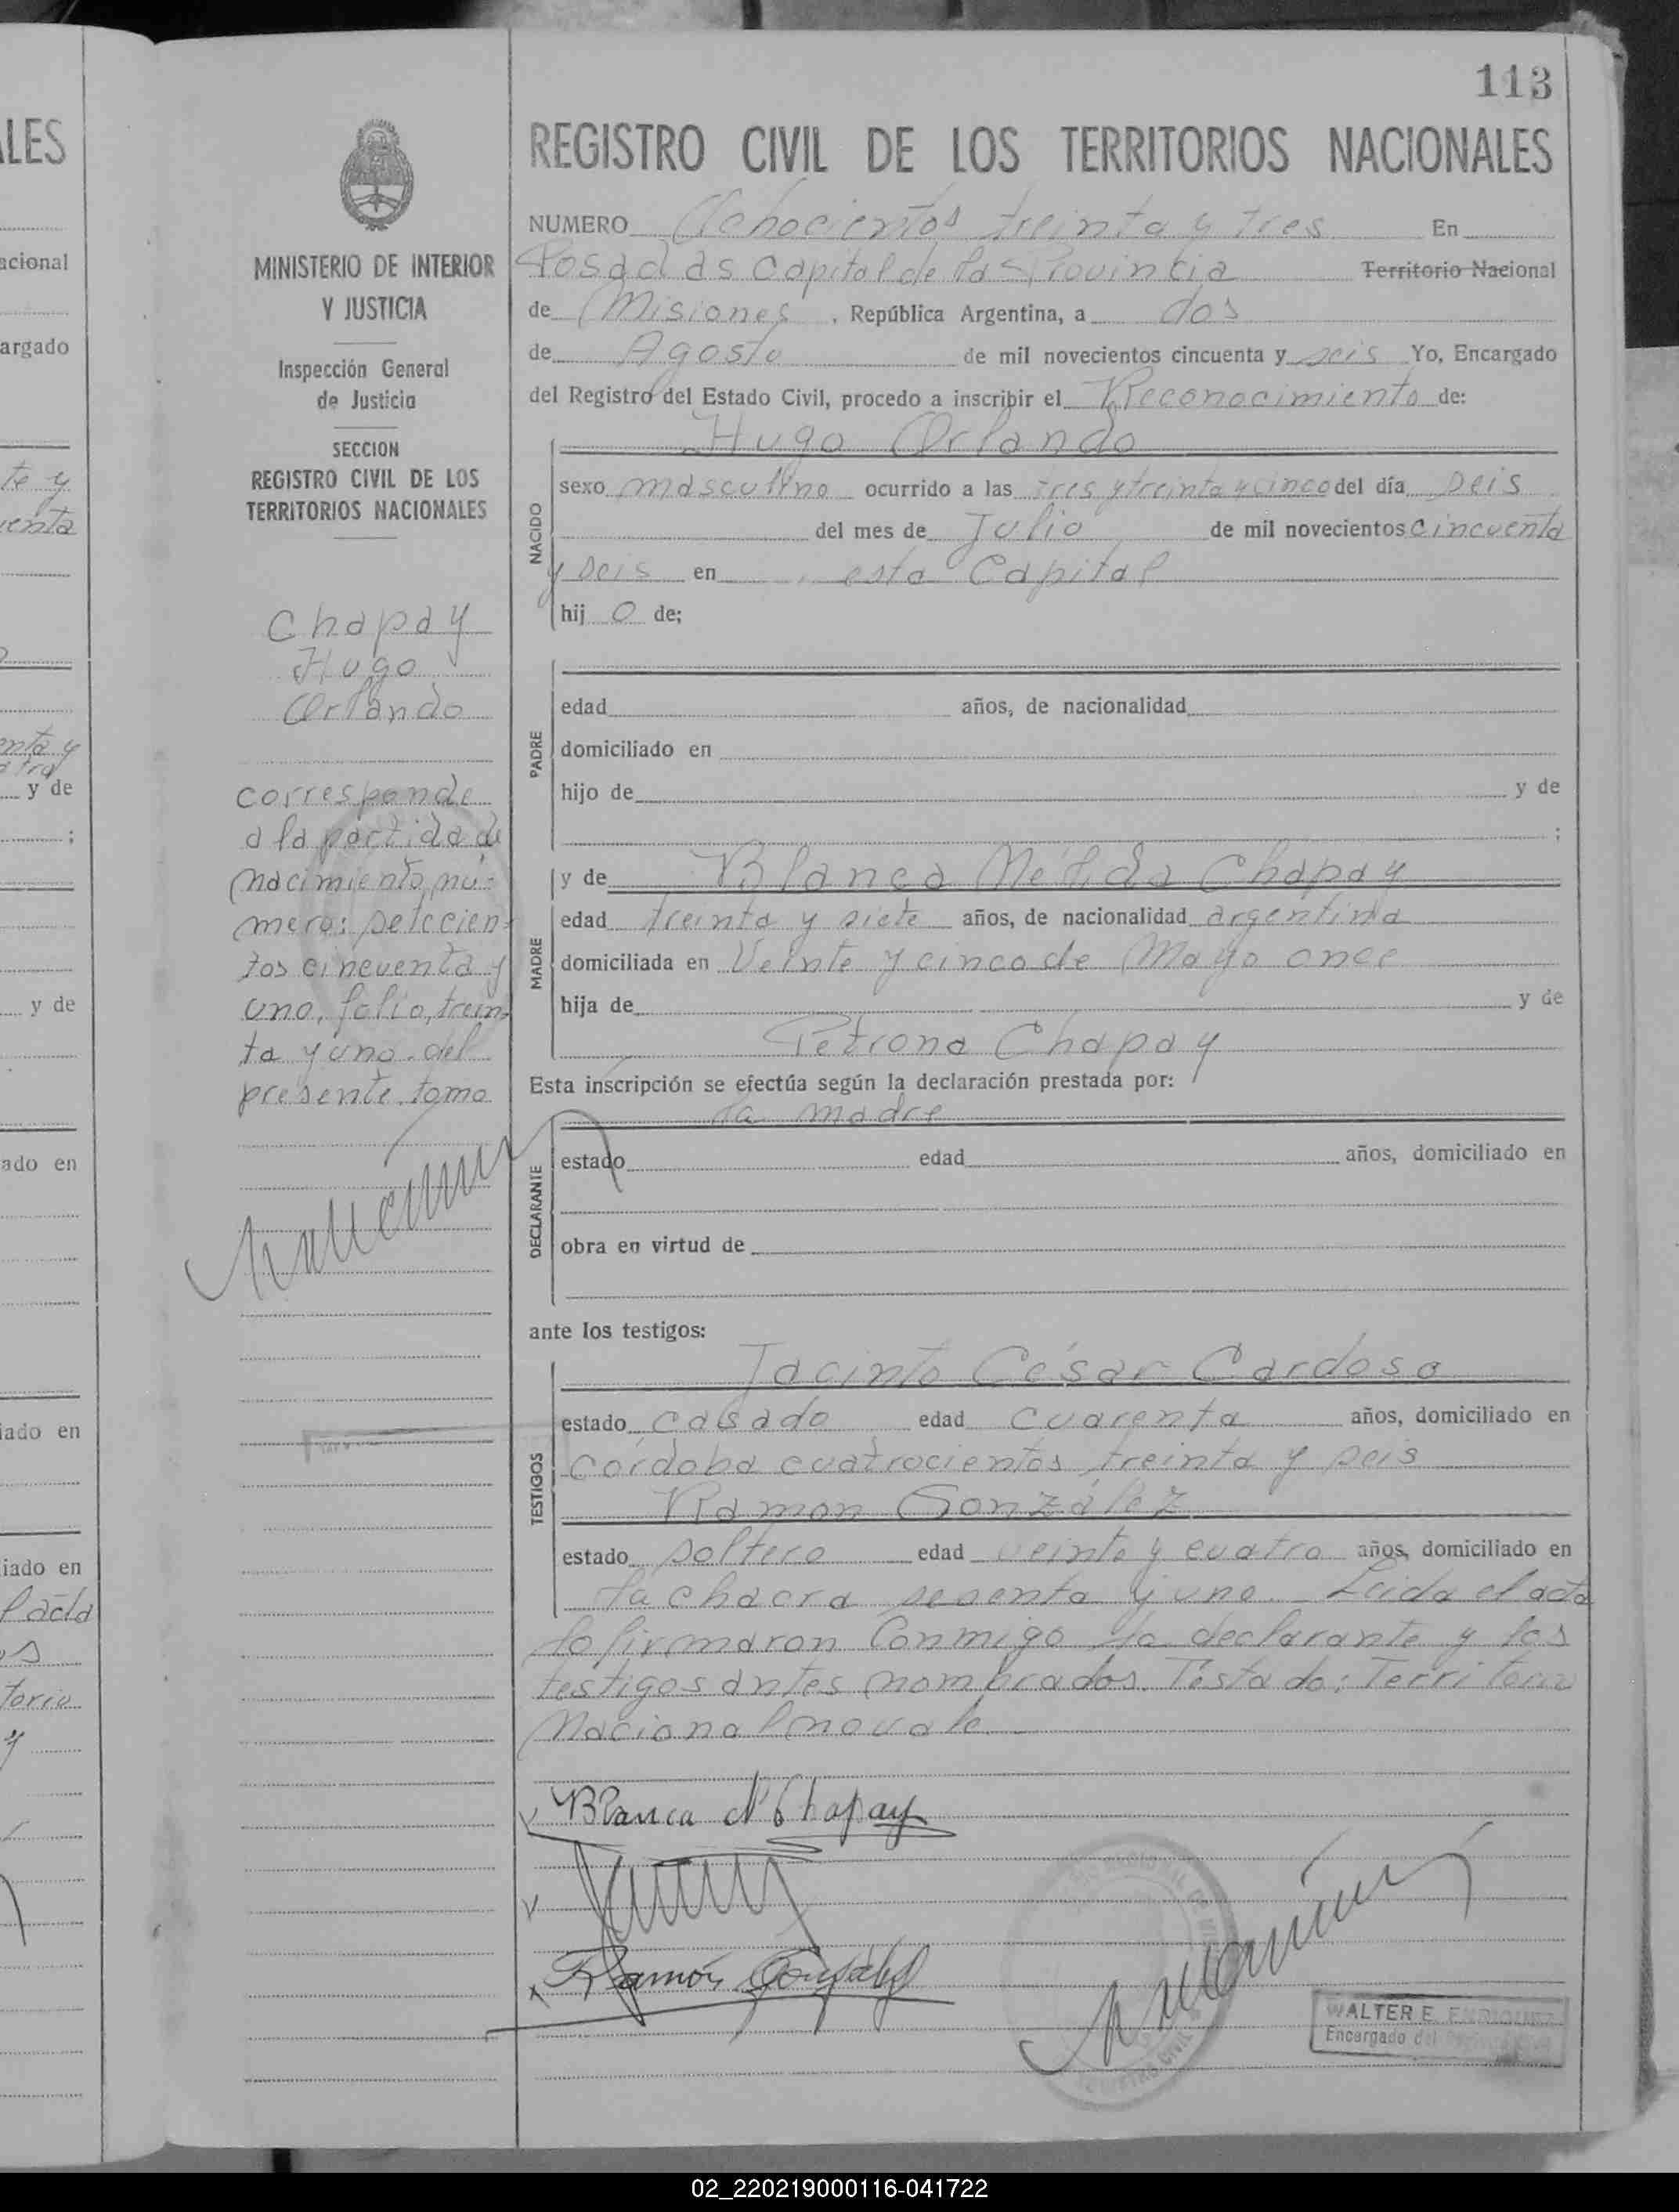 113
REGISTRO CIVIL DE LOS TERRITORIOS NACIONALES
NUMERO Ochocientos treinta y tres En
Posadas Capital de la Provincia Territorio Nacional
de Misiones, República Argentina, a dos
de Agosto de mil novecientos cincuenta y seis Yo, Encargado
del Registro del Estado Civil, procedo a inscribir el Reconocimiento de:
Hugo Orlando
NACIDO
sexo masculino ocurrido a las tres y treinta y cinco del día seis
del mes de Julio de mil novecientos cincuenta
y seis en esta Capital
hij o de;
PADRE
edad años, de nacionalidad
domiciliado en
hijo de y de
;
MADRE
y de Blanca Nélida Chapay
edad treinta y siete años, de nacionalidad argentina
domiciliada en Veinte y cinco de Mayo once
hija de y de
Petrona Chapay
Esta inscripción se efectúa según la declaración prestada por:
la madre
DECLARANTE
estado edad años, domiciliado en
obra en virtud de
ante los testigos:
TESTIGOS
Jacinto César Cardoso
estado casado edad cuarenta años, domiciliado en
Córdoba cuatrocientos treinta y seis
Ramon González
estado soltero edad veinte y cuatro años, domiciliado en
la chacra sesenta y uno. Leida el acta
la firmaron conmigo la declarante y los
testigos antes nombrados. Testado: Territorio
Nacional no vale.
Blanca N Chapay
Ramón González
WALTER E. ENRIQUEZ
Encargado del
MINISTERIO DE INTERIOR
Y JUSTICIA
Inspección General
de Justicia
SECCION
REGISTRO CIVIL DE LOS
TERRITORIOS NACIONALES
Chapay
Hugo
Orlando
corresponde
a la partida de
nacimiento nú-
mero: setecien-
tos cincuenta y
uno, folio, trein-
ta y uno del
presente tomo
ALES
acional
argado
te y
enta
enta y
y de
;
y de
ado en
iado en
iado en
l acta
os
torio
y
02_220219000116-041722